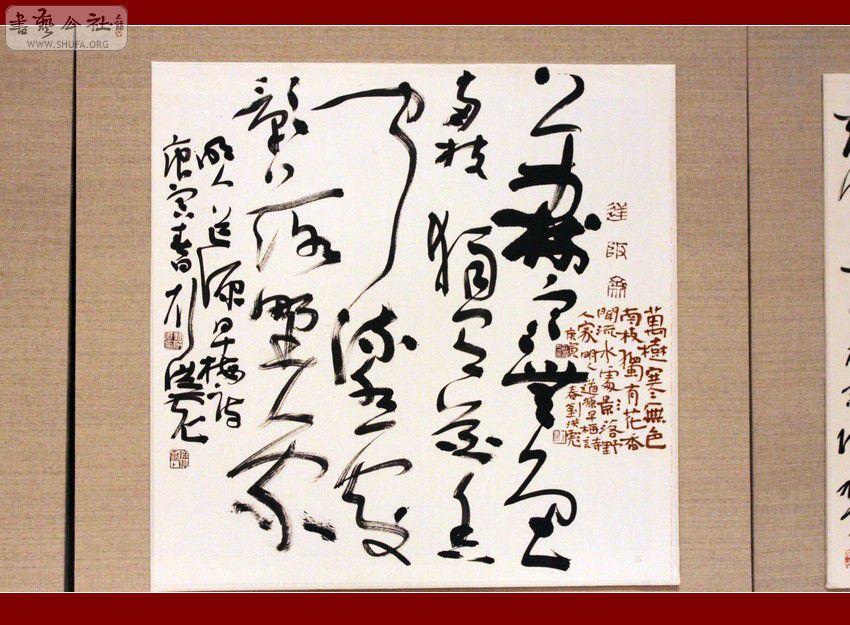 書藝公社
WWW.SHUFA.ORG
萬樹寒無色
南枝獨有花香
聞流水處
影落野人家
明人道源早梅詩
庚寅春劉洪彪
萬樹寒無色
南枝獨有花香
聞流水處影落野
人家明人道源早梅詩
庚寅春劉洪彪